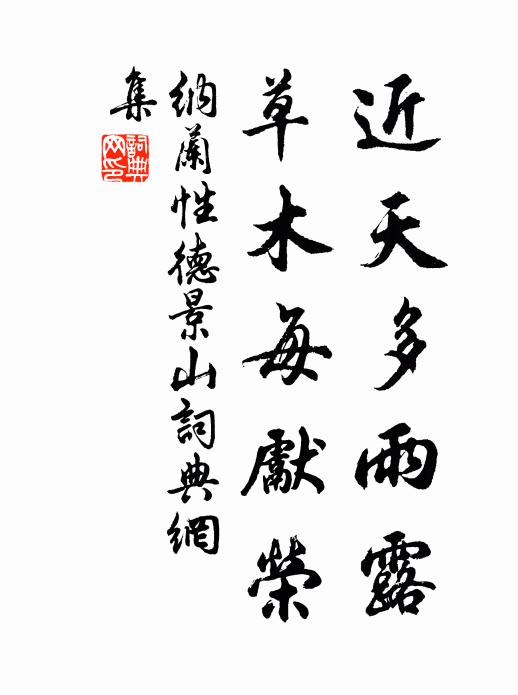 近天多雨露
草木每獻榮
納蘭性德景山詞典網
集
詞典
网印